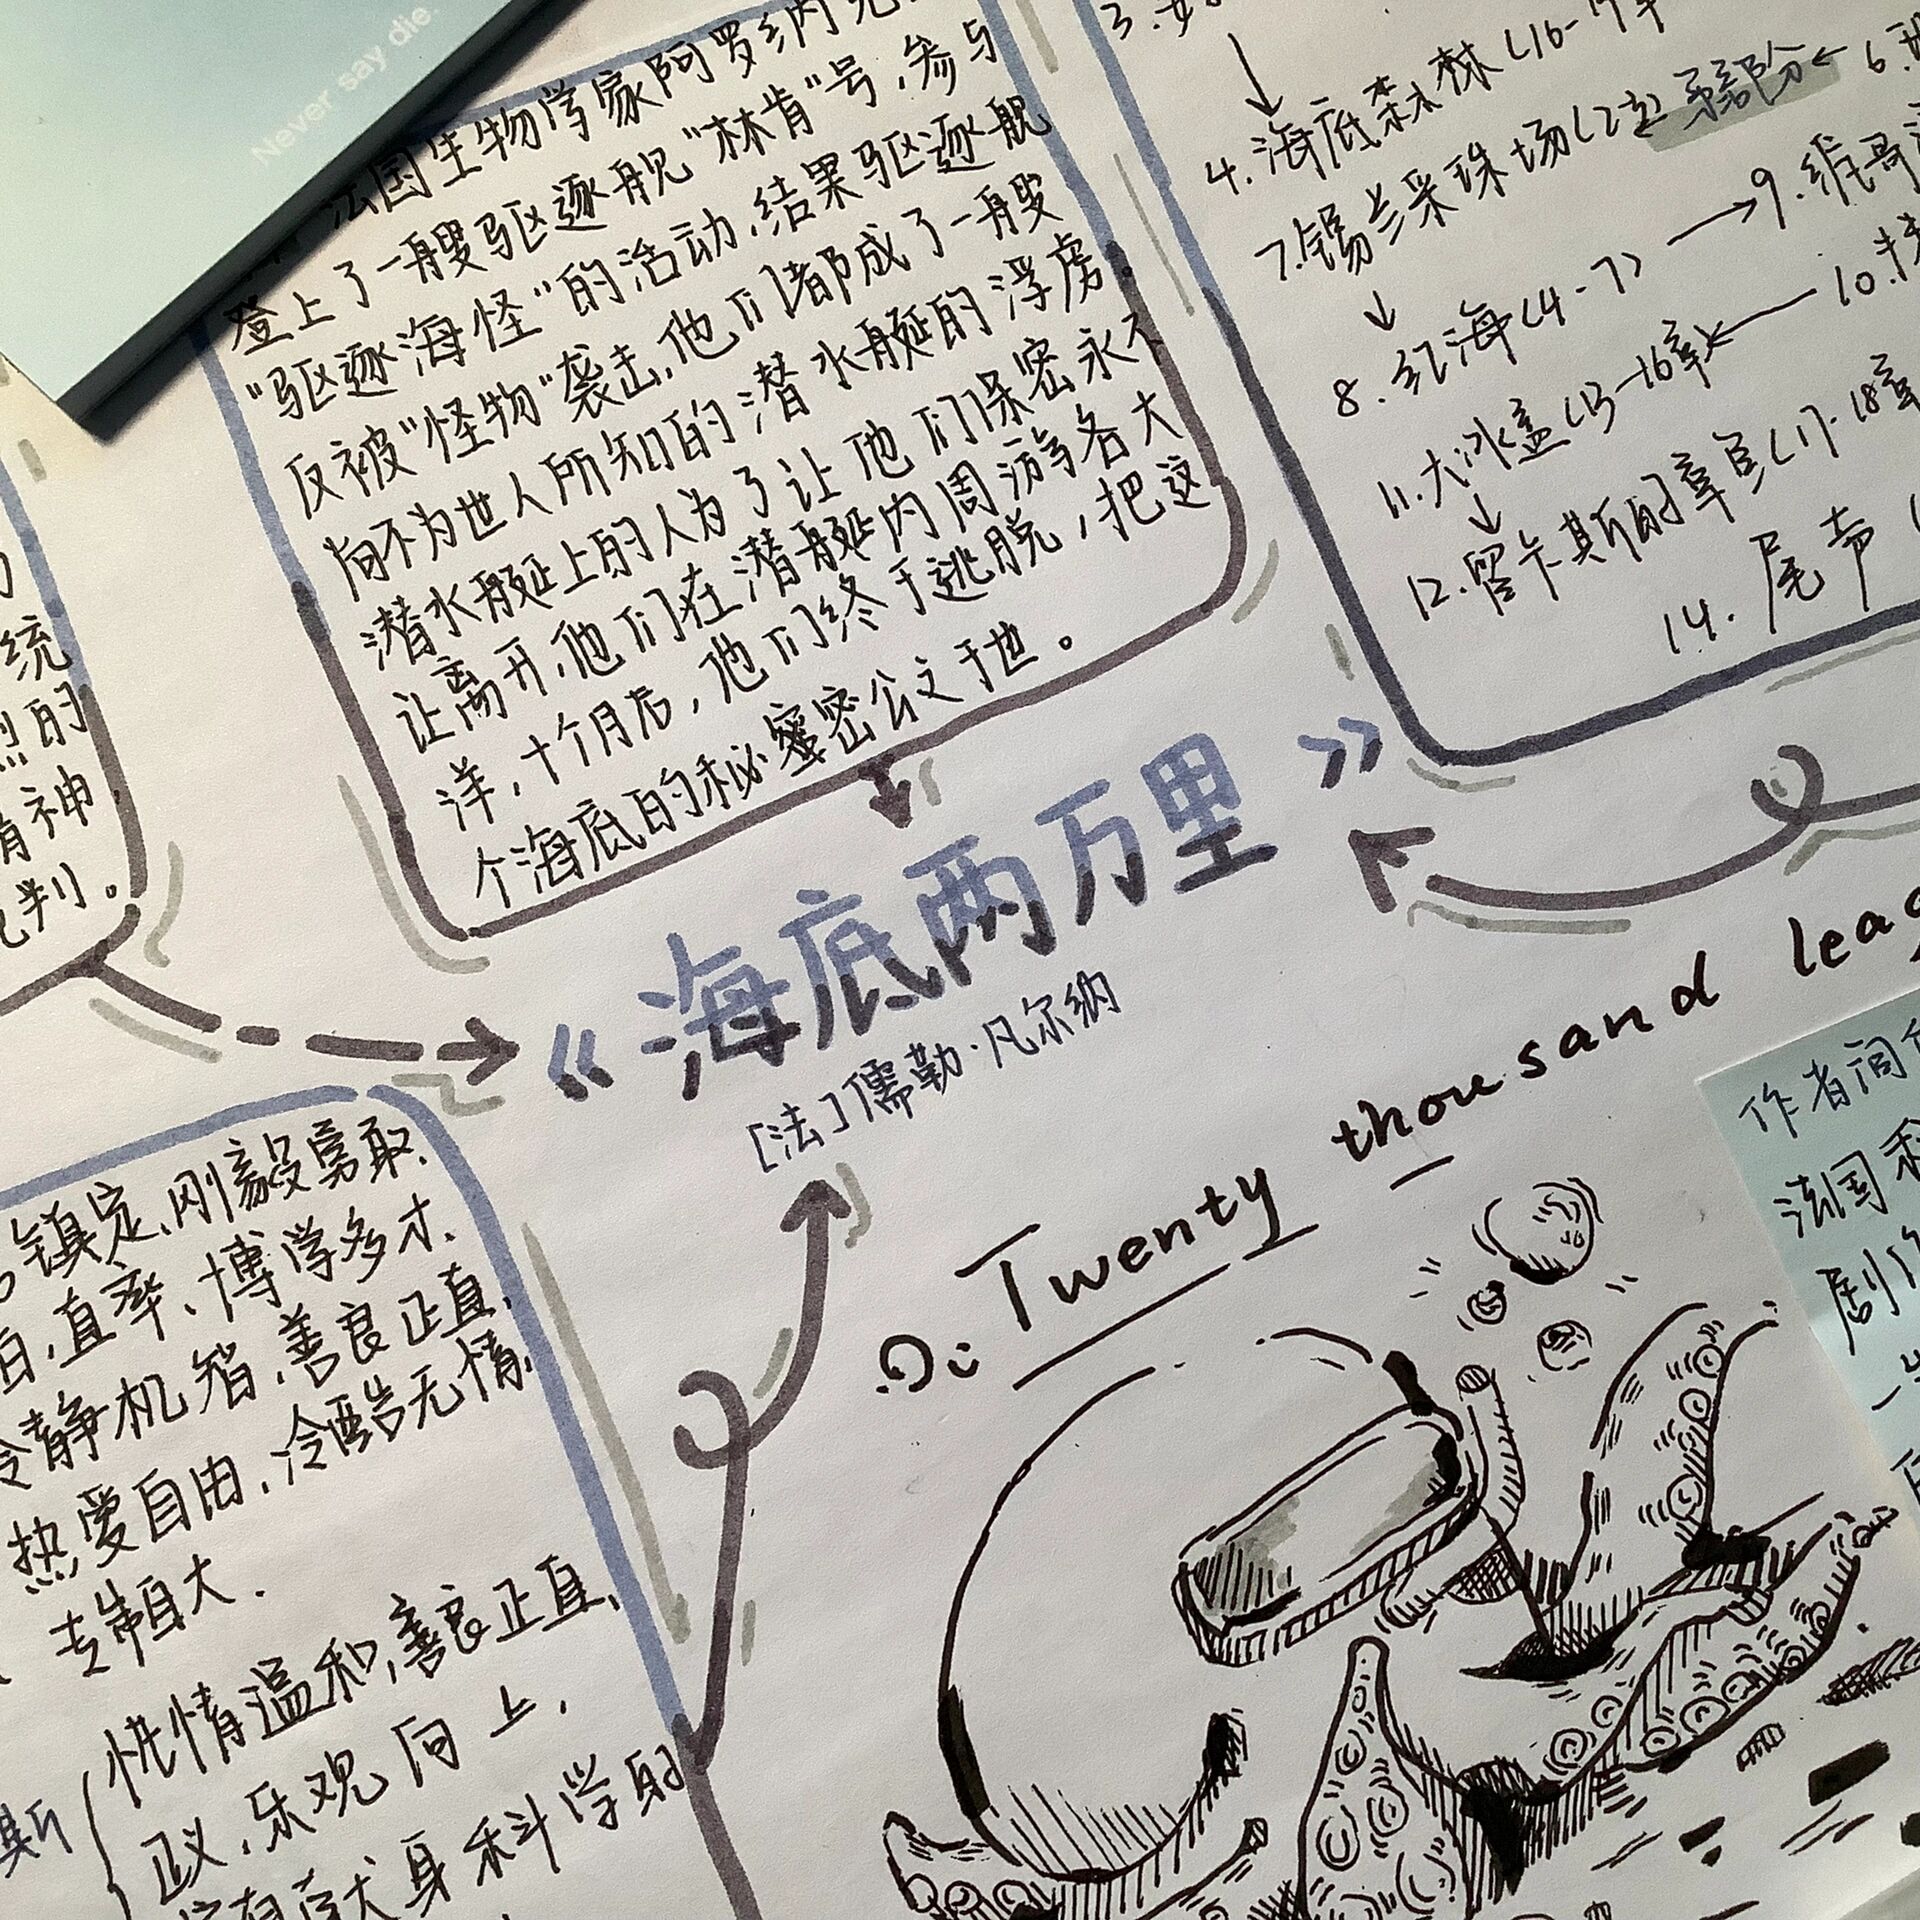 Never say die.
法国生物学家阿罗纳
登上了一艘驱逐舰"林肯"号,参与
"驱逐海怪"的活动,结果驱逐舰
反被"怪物"袭击,他们都成了一艘
尚不为世人所知的潜水艇的浮虏
潜水艇上的人为了让他们保密永不
让离开,他们在潜艇内周游各大
洋,十个月后,他们终于逃脱,把这
个海底的秘密公文于世。
3.
4.海底森林(16-17章
7.锡兰采珠场(2主 第二部分 ← 6.
8.红海(4-7) → 9.维哥
11.大冰盖(13-16章 ← 10.
12.留卡斯的章鱼(17-18章
14.尾声
统
烈的
精神,
批判。
《海底两万里》
[法]儒勒·凡尔纳
Twenty thousand leag
镇定、刚毅勇敢、
直率、博学多才、
冷静机智,善良正直,
热爱自由,冷酷无情,
专制自大.
性情温和,善良正直,
正义,乐观向上,
献身科学的
斯
作者
法国科
剧作
一生